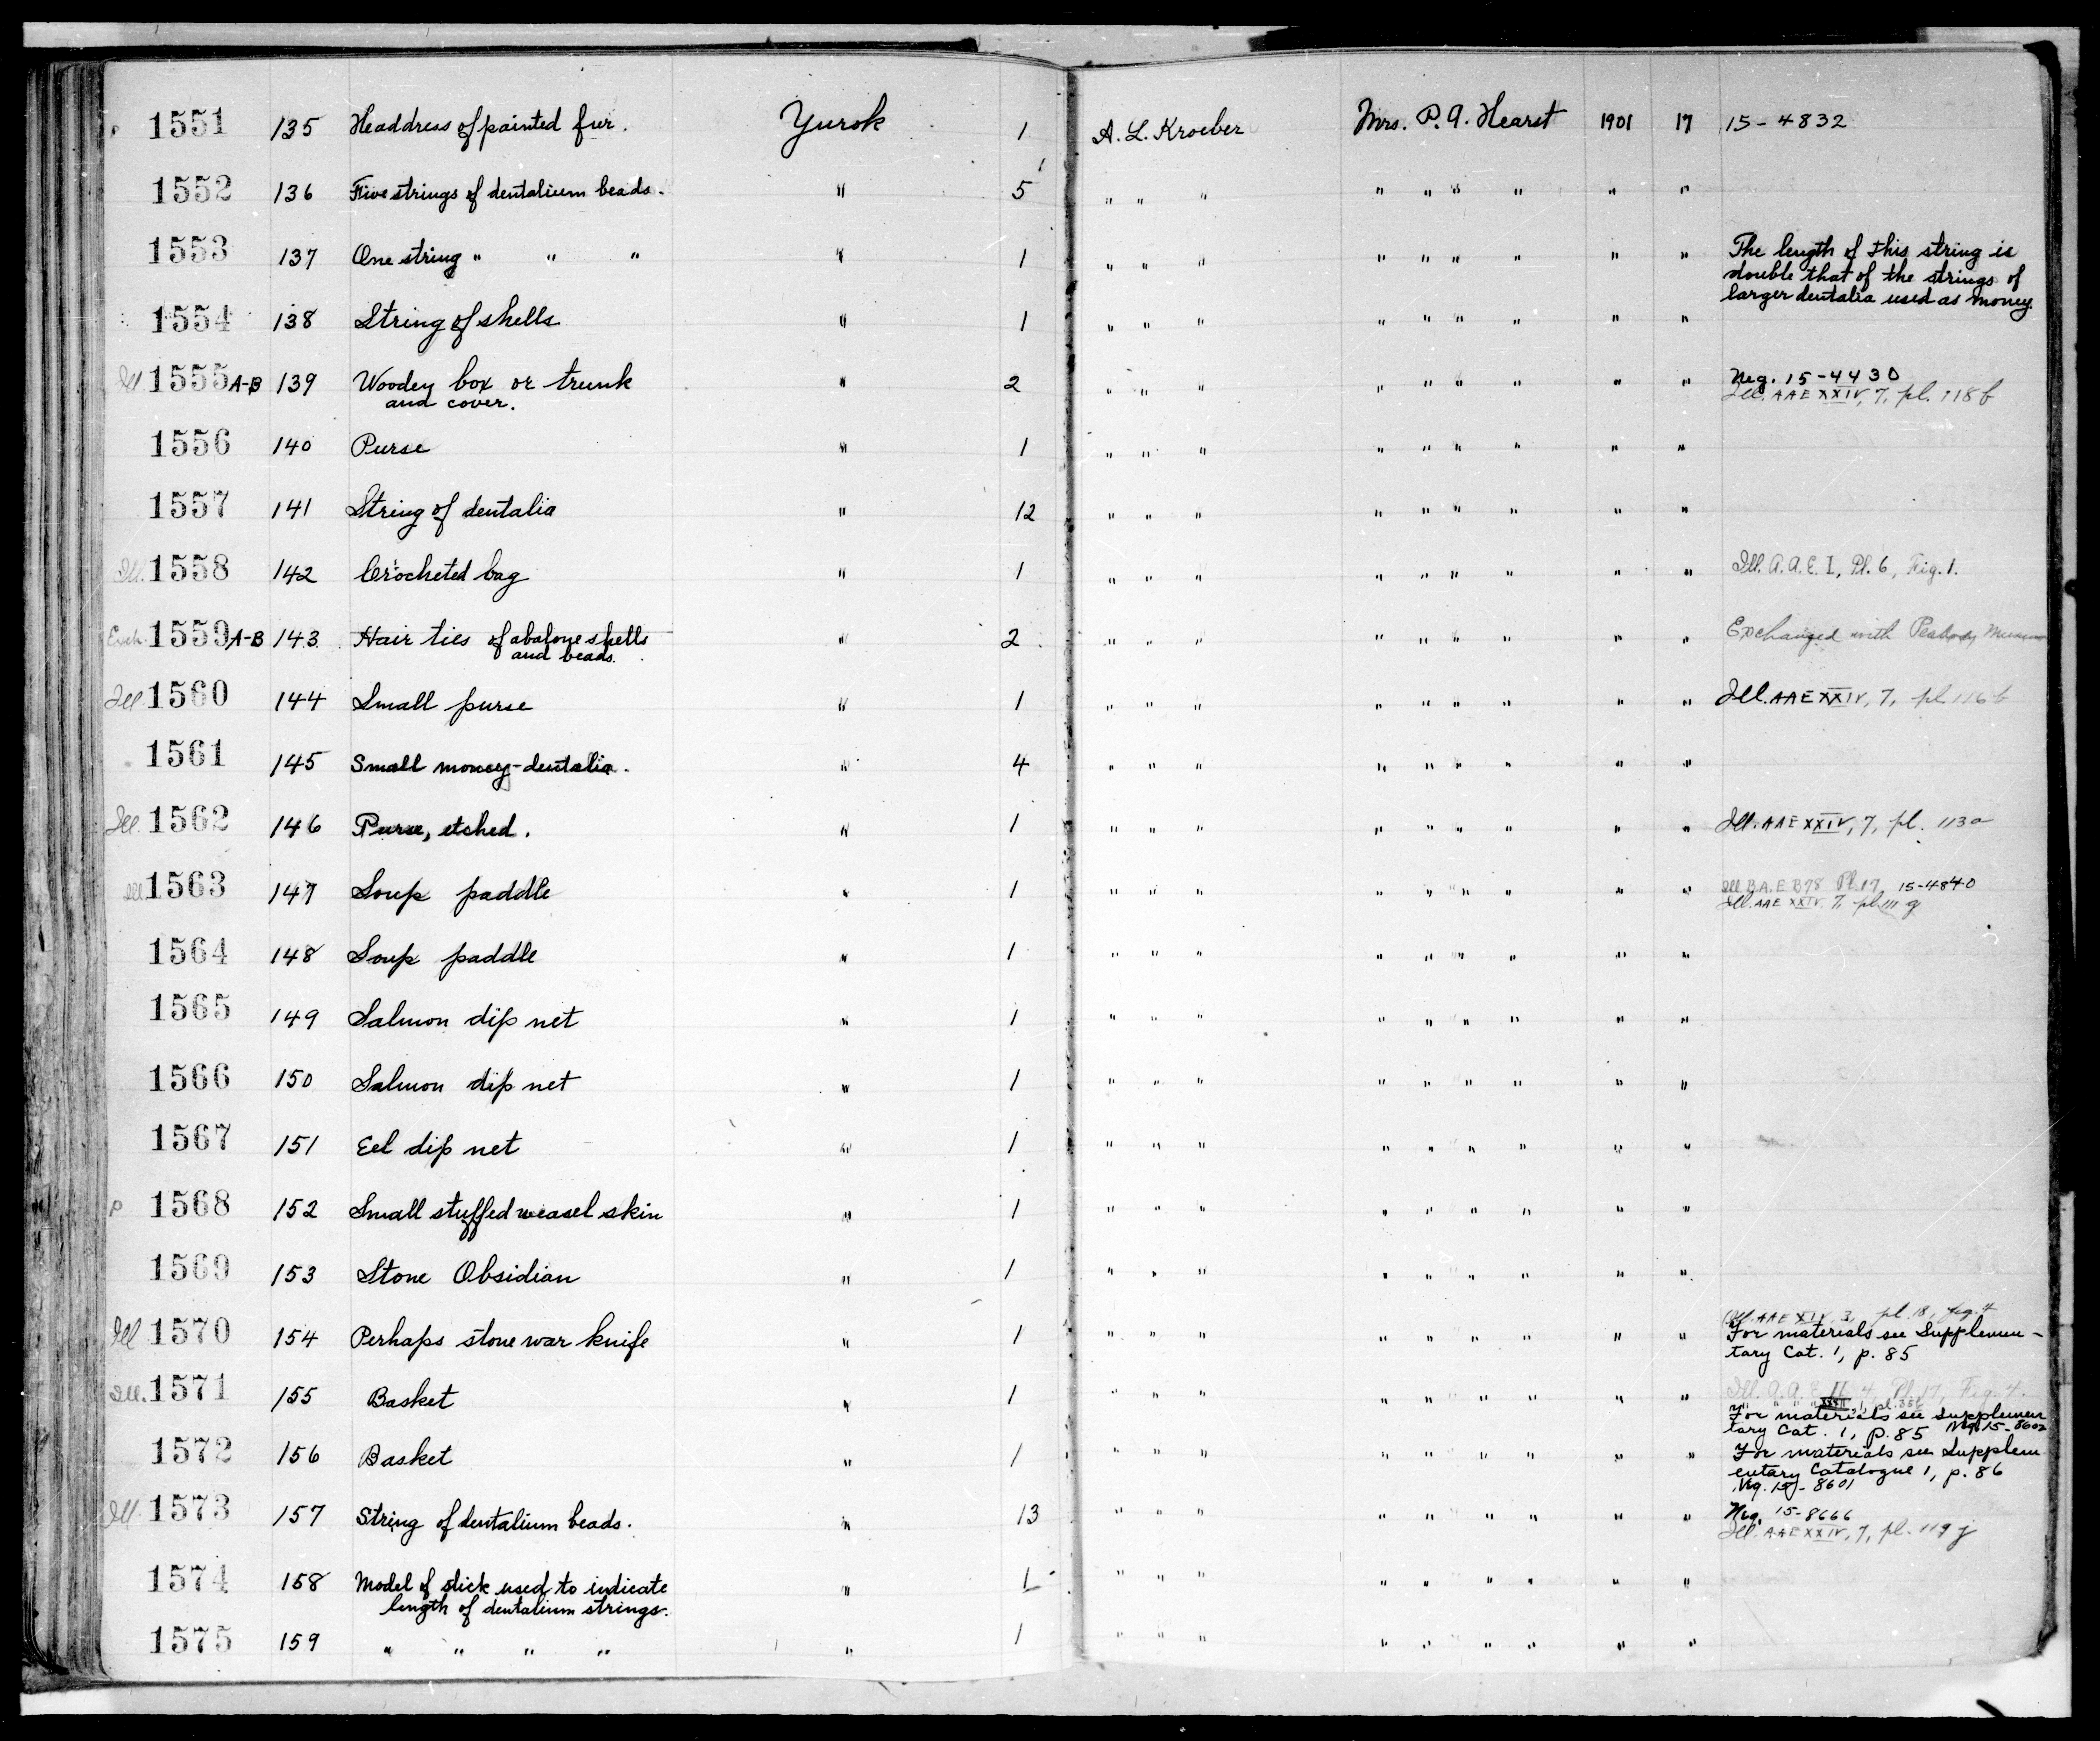 1551 135 Headdress of painted fur. Yurok 1 A. L. Kroeber Mrs. P. A. Hearst 1901 17 15-4832
1552 136 Five strings of dentalium beads. " 5 " " " " " " " " "
1553 137 One string " " " " 1 " " " " " " " " " The length of this string is
double that of the strings of
larger dentalia used as money
1554 138 String of shells " 1 " " " " " " " " "
Ill. 1555 A-B 139 Wooden box or trunk " 2 " " " " " " " " " Neg. 15-4430
and cover. Ill. AAE XXIV, 7, pl. 118 f
1556 140 Purse " 1 " " " " " " " " "
1557 141 String of dentalia " 12 " " " " " " " " "
Ill. 1558 142 Crocheted bag " 1 " " " " " " " " " Ill. A.A.E. I, Pl. 6, Fig. 1.
Exch. 1559 A-B 143 Hair ties of abalone shells " 2 " " " " " " " " " Exchanged with Peabody Museum
and beads.
Ill 1560 144 Small purse " 1 " " " " " " " " " Ill. AAE XXIV, 7, pl. 116 b
1561 145 Small money-dentalia. " 4 " " " " " " " " "
Ill. 1562 146 Purse, etched. " 1 " " " " " " " " " Ill. AAE XXIV, 7, pl. 113a
Ill 1563 147 Soup paddle " 1 " " " " " " " " " Ill. B.A.E. B78 Pl. 17, 15-4840
Ill. AAE XXIV, 7, pl. 111 g
1564 148 Soup paddle " 1 " " " " " " " " "
1565 149 Salmon dip net " 1 " " " " " " " " "
1566 150 Salmon dip net " 1 " " " " " " " " "
1567 151 Eel dip net " 1 " " " " " " " " "
P 1568 152 Small stuffed weasel skin " 1 " " " " " " " " "
1569 153 Stone Obsidian " 1 " " " " " " " " "
Ill. AAE XIV, 3, pl. 18, fig. 4
Ill 1570 154 Perhaps stone war knife " 1 " " " " " " " " " For materials see Supplemen-
tary Cat. 1, p. 85
Ill. 1571 155 Basket " 1 " " " " " " " " " Ill. A.A.E. II, 4, Pl. 17, Fig. 4.
For materials see Supplemen
tary Cat. 1, p. 85 Neg. 15-8602
1572 156 Basket " 1 " " " " " " " " " For materials see Supplem
entary Catalogue 1, p. 86
Neg. 15-8601
Ill. 1573 157 String of dentalium beads. " 13 " " " " " " " " " Neg. 15-8666
Ill. AAE XXIV, 7, pl. 119 j
1574 158 Model of stick used to indicate " 1 " " " " " " " " "
length of dentalium strings.
1575 159 " " " " " 1 " " " " " " " " "